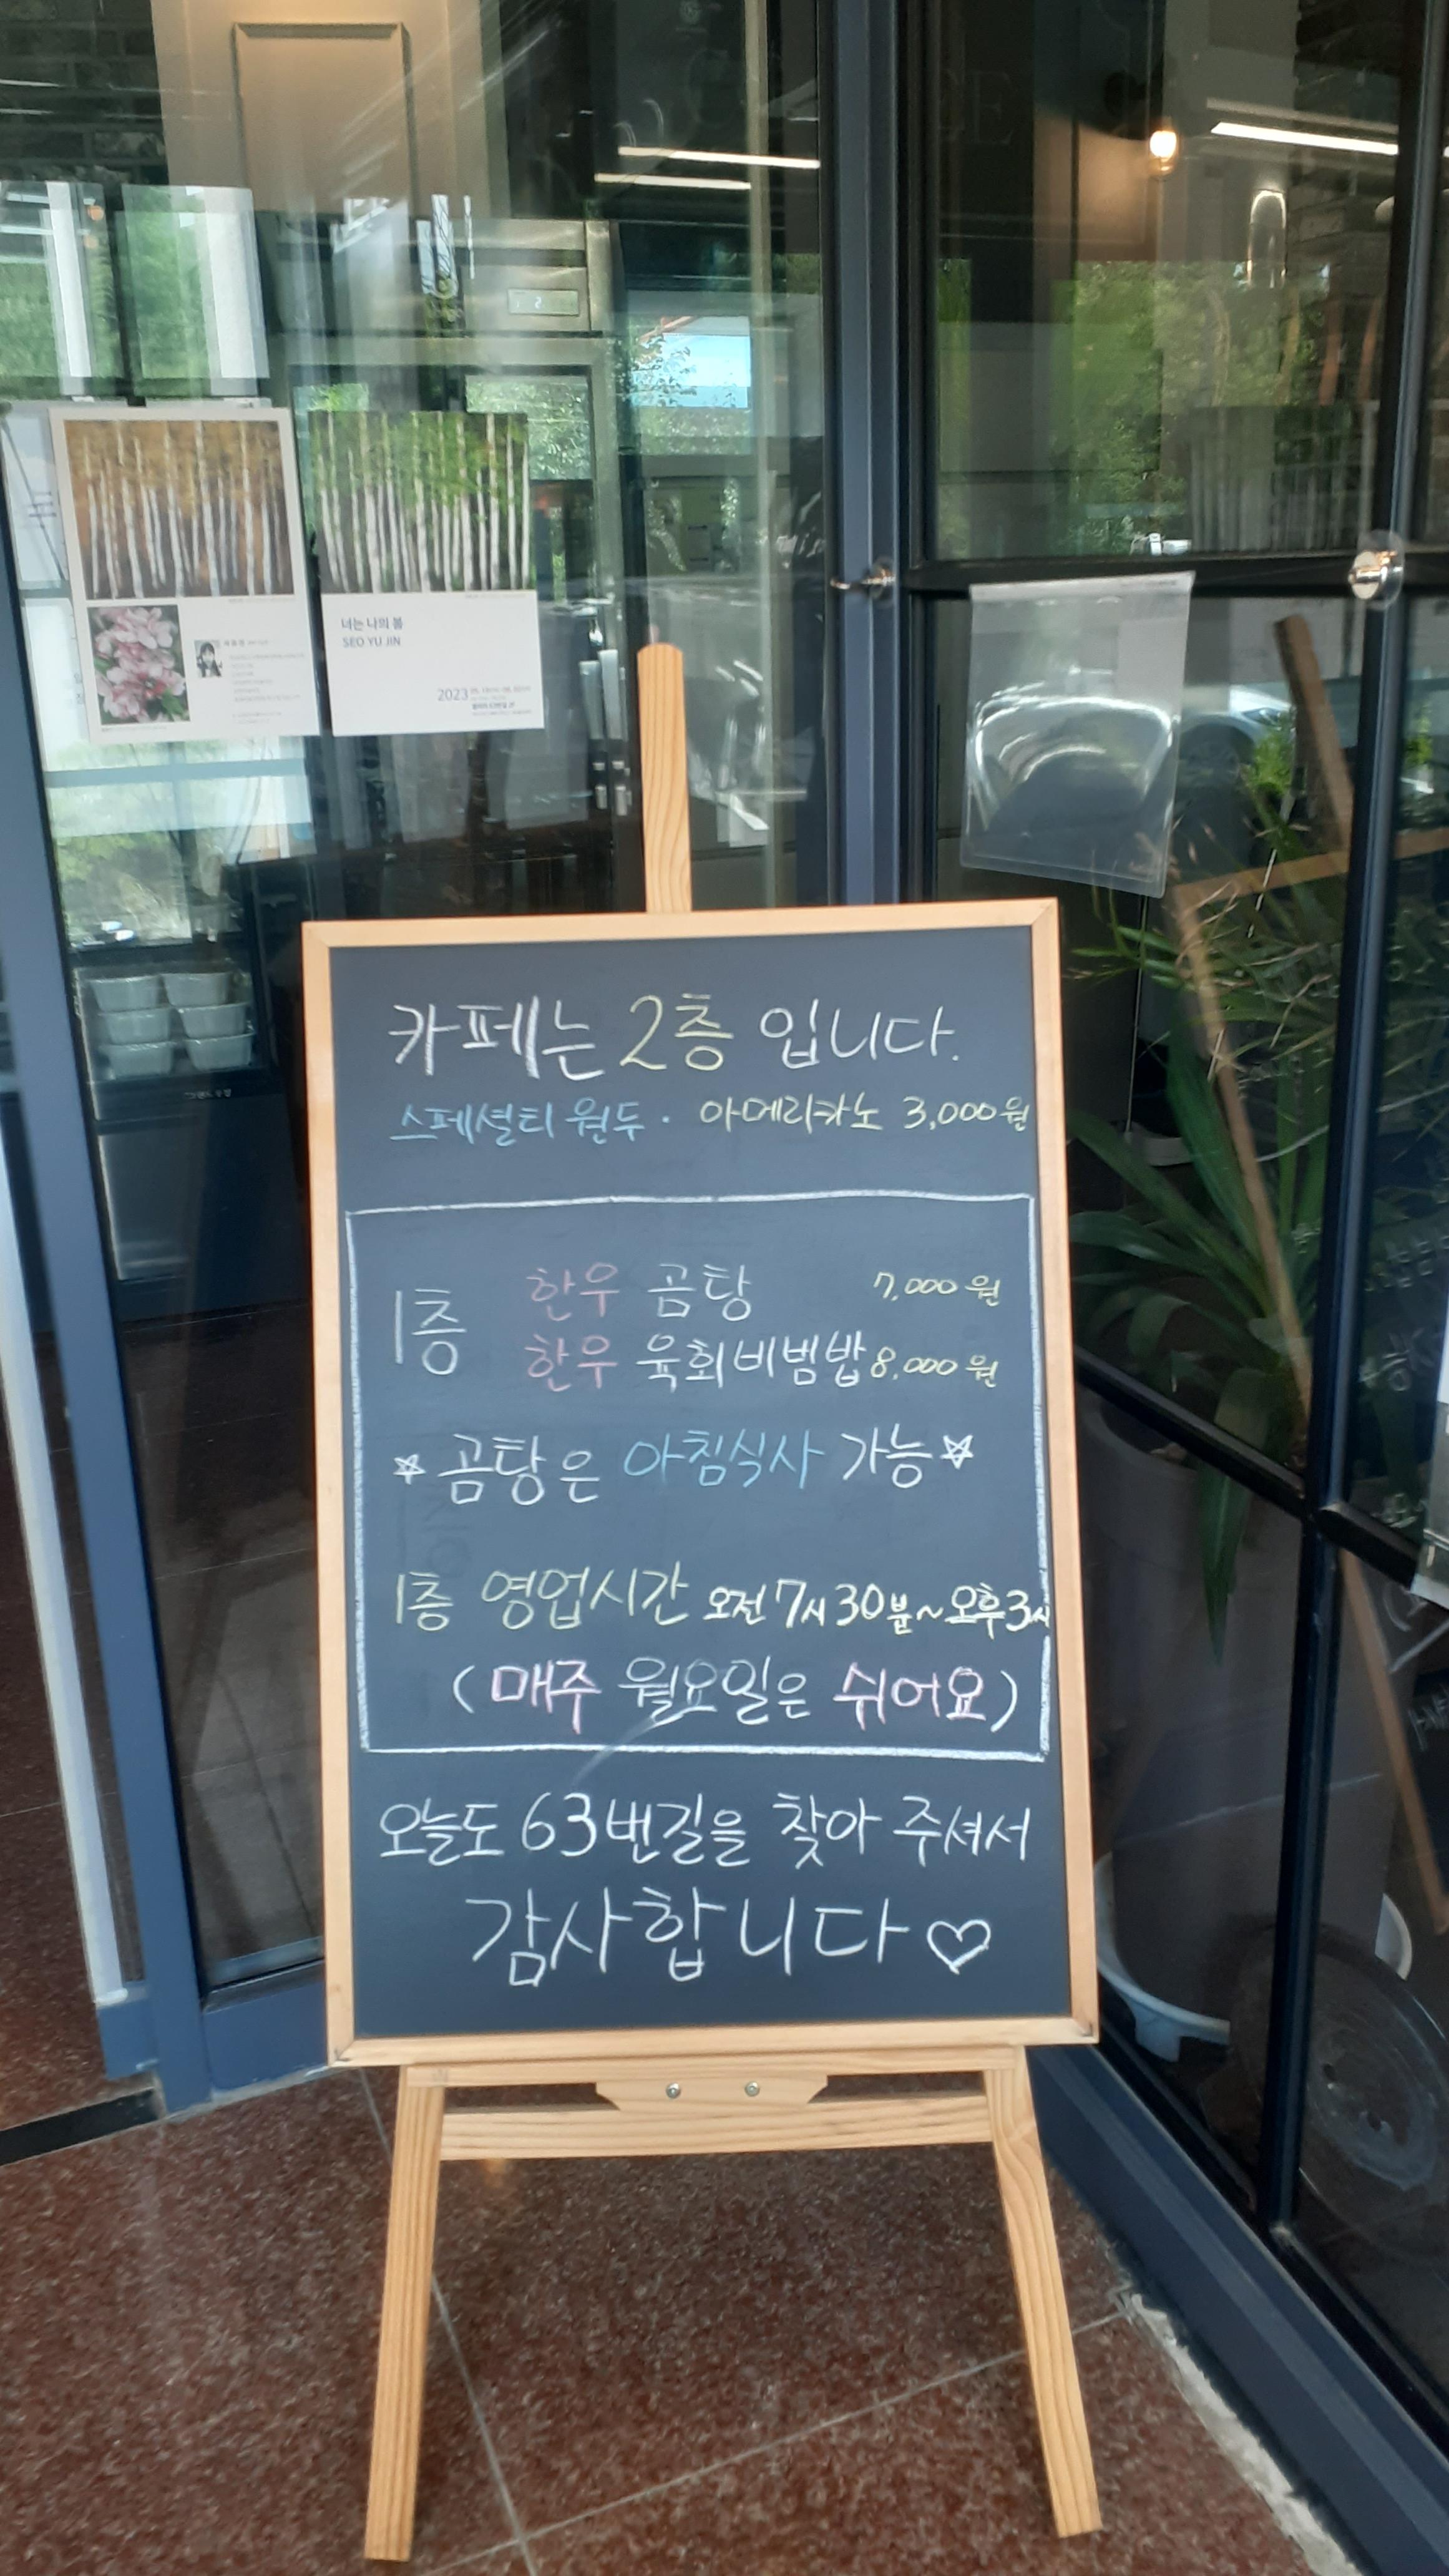 너는 나의 봄
SEO YU JIN
2023
카페는 2층 입니다.
스페셜티 원두 · 아메리카노 3,000원
1층 한우 곰탕 7,000원
한우 육회비빔밥 8,000원
☆곰탕은 아침식사 가능☆
1층 영업시간 오전 7시 30분~오후 3시
(매주 월요일은 쉬어요)
오늘도 63번길을 찾아 주셔서
감사합니다♡